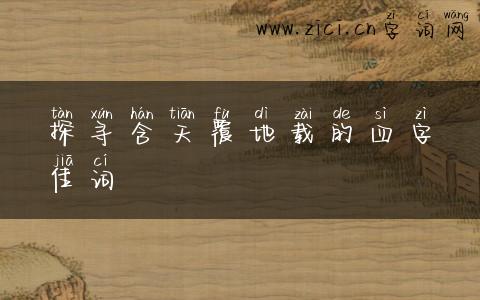 zì cí wǎng
www.zici.cn字词网
tàn xún hán tiān fù dì zài de sì zì
探寻含天覆地载的四字
jiā cí
佳词